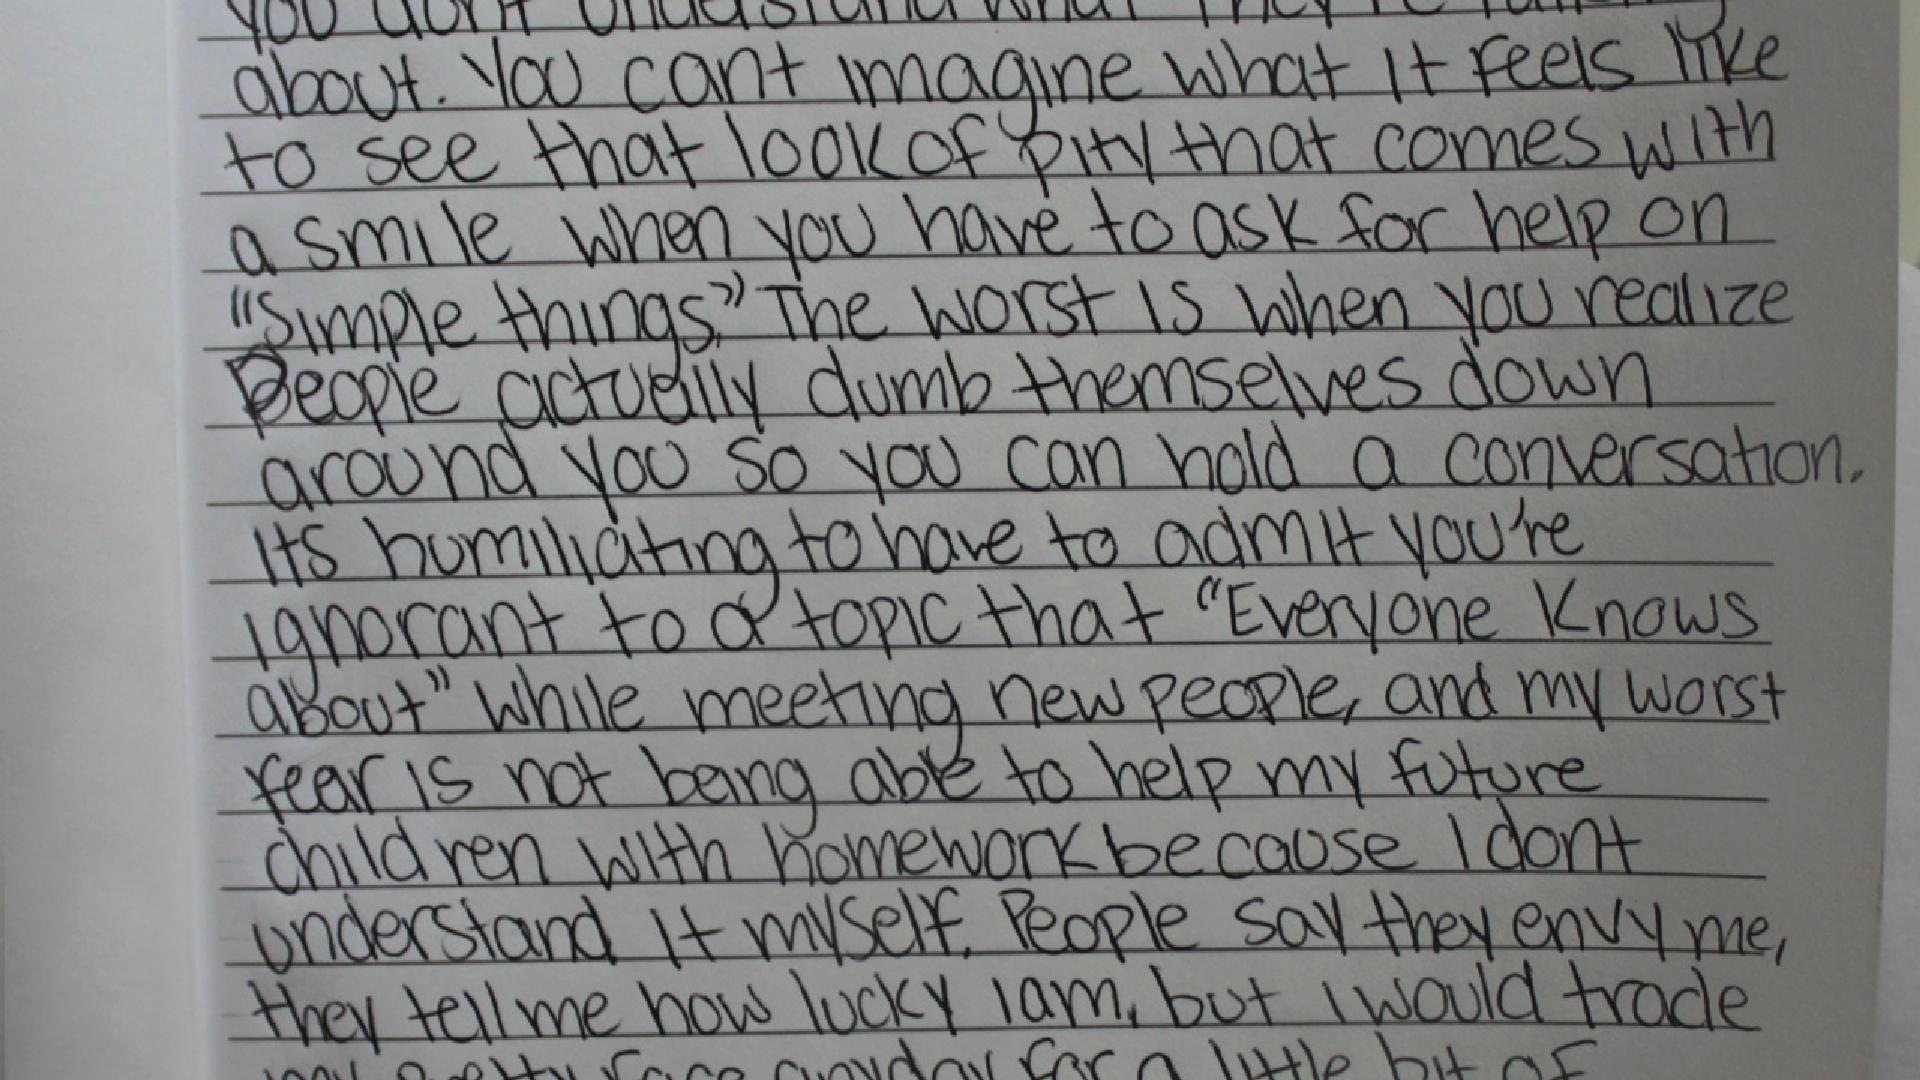 you don't understand what they're talking
about. You cant imagine what it feels like
to see that look of pity that comes with
a smile when you have to ask for help on
"Simple things." The worst is when you realize
People actually dumb themselves down
around you so you can hold a conversation.
Its humiliating to have to admit you're
ignorant to a topic that "Everyone Knows
about" while meeting new people, and my worst
fear is not being able to help my future
children with homework because I dont
understand it myself. People say they envy me,
they tell me how lucky I am, but I would trade
my pretty face anyday for a little bit of